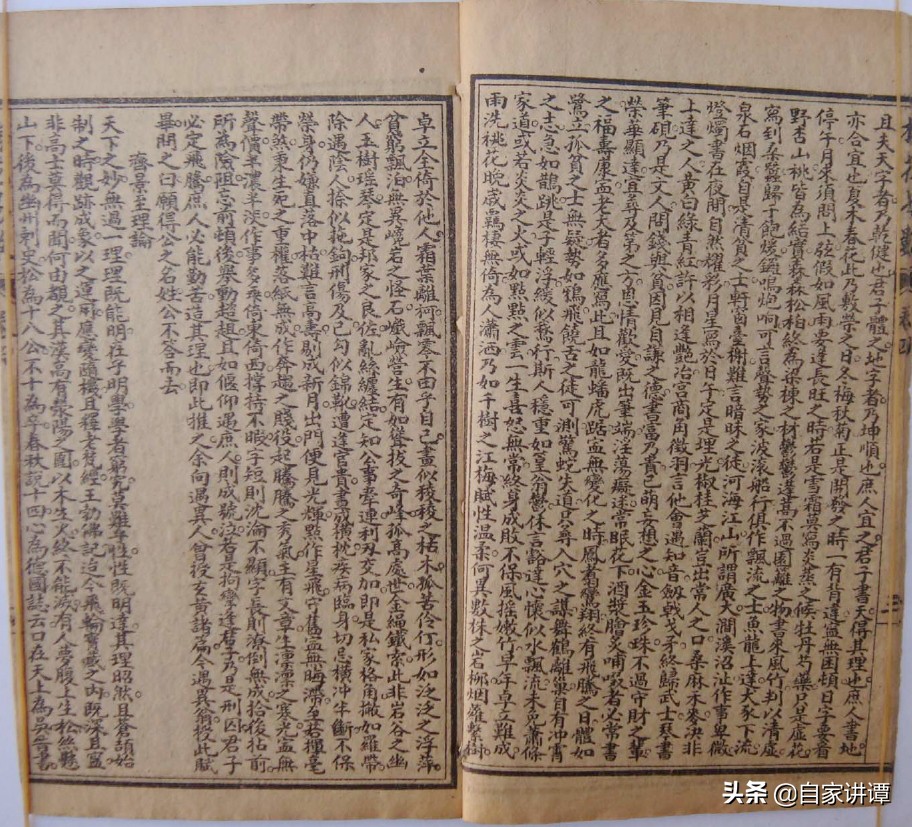 且夫天字者乃乾健也君子體之地字者乃坤順也庶人宜之君子書天得其理也庶人書地
亦合宜也夏木春花此乃敷榮之日冬梅秋菊正是開發之時一有背違盍無困頓日字要看
停午月來須問上弦假如風雨要逢長旺之時若是雲霜莫寫炎蒸之候牡丹芍藥只是虛花
野杏山桃皆為結實森森松柏終為梁棟之材鬱鬱蓬蒿不過園籬之物書來風竹判以清虛
寫到桑蠶歸于飽煖鑼鳴炮响可言聲勢之家波滾船行俱作飄流之士魚龍上達犬豕下流
泉石烟霞自是清貧之士軒窗臺榭難言暗昧之徒河海江山所謂廣大澗溪沼沚作事卑微
燈燭書在夜間自然耀彩月星寫於日午定是埋光椒桂芝蘭豈出常人之口桑麻禾黍決非
上達之人黃白綠青紅許以相逢艷冶宮商角徵羽言他會遇知音劔戟戈矛終歸武士琴書
筆硯乃是文人問錢與貧因見自謙之德書富乃貴已萌妄想之心金玉珍珠不過守財之輩
榮華顯達宜尋及第之方恩情歡愛既出筆端淫蕩癡迷常眠花下酒漿膾炙哺啜者必常書
之福壽康盍老夫者多應寫此且如龍蟠虎踞盍無變化之時鳳翥鸞翔終有飛騰之日體如
鷺立孤貧之士無疑勢如鴉飛饒舌之徒可測驚蛇失道只尋入穴之謀舞鶴離巢自有冲霄
之志急如鵲跳是子輕浮緩似鵞行斯人穩重如篁翁鬱休言豁達心懷似水飄流未免蕭條
家道或若炎炎之火或如點點之雲一生喜怒無常終身成敗不保風搖嫩竹早年卓立難成
雨洗桃花晚歲羈棲無倚為人瀟洒乃如千樹之江梅賦性温柔何異數株之岩柳烟蘿繫樹
卓立全倚於他人霜葉離柯飄零不由乎自己畫似稜稜之枯木孤苦伶仃形如泛泛之浮萍
貧窮飄泊無異嶢石之怪石峨崢營生有如聳拔之奇峰孤高處世金綿鐵索此非岩谷之幽
人玉樹瑶琴定是邦家之良佐亂絲纏結定知公事牽連利刃交加即是私家格角撇如羅帶
除遇陰人捺似花鈎刑傷及己勾似錦靴遭逢官貴書成橫枕疾病臨身切忌橫冲半斷不保
榮身仍嫌直落中枯難言高壽剔成新月出門便見光輝點作星飛守舊盍無晦滯至若揮毫
帶煞秉生死之重權落紙無成作奔趨之賤役起騰騰之秀氣主有文章生凜凜之寒光盍無
聲價半濃半淡作事多乖倚東倚西撐持不暇字短則沈淪不顯字長則潦倒無成拾後拈前
所為險阻忘前頓後舉動趑趄且如偃仰遇庶人則成號泣若是拘攣逢君子乃是刑囚君子
必定飛騰庶人必能勤苦造其理也即此推之余向遇異人曾授玄黃諸篇今遇異翁授此賦
畢問之曰願得公之名姓公不答而去
齊景至理論
天下之妙無過一理理既能明在乎明學學者窮究莫難乎性性既明達其理昭然且蒼頡始
制之時觀跡成象以之運用應變隨機且釋老梵經王勃佛記迨今飛輪寶藏之內既深且奧
非高士莫得而聞何由覩之其漢高有滎陽之圍以木生火終不能滅有人夢腹上生松丝懸
山下後為幽州刺史松為十八公不十為卒春秋說十四心為德國誌云口在天上為吳晋書
头条 @自家讲谭